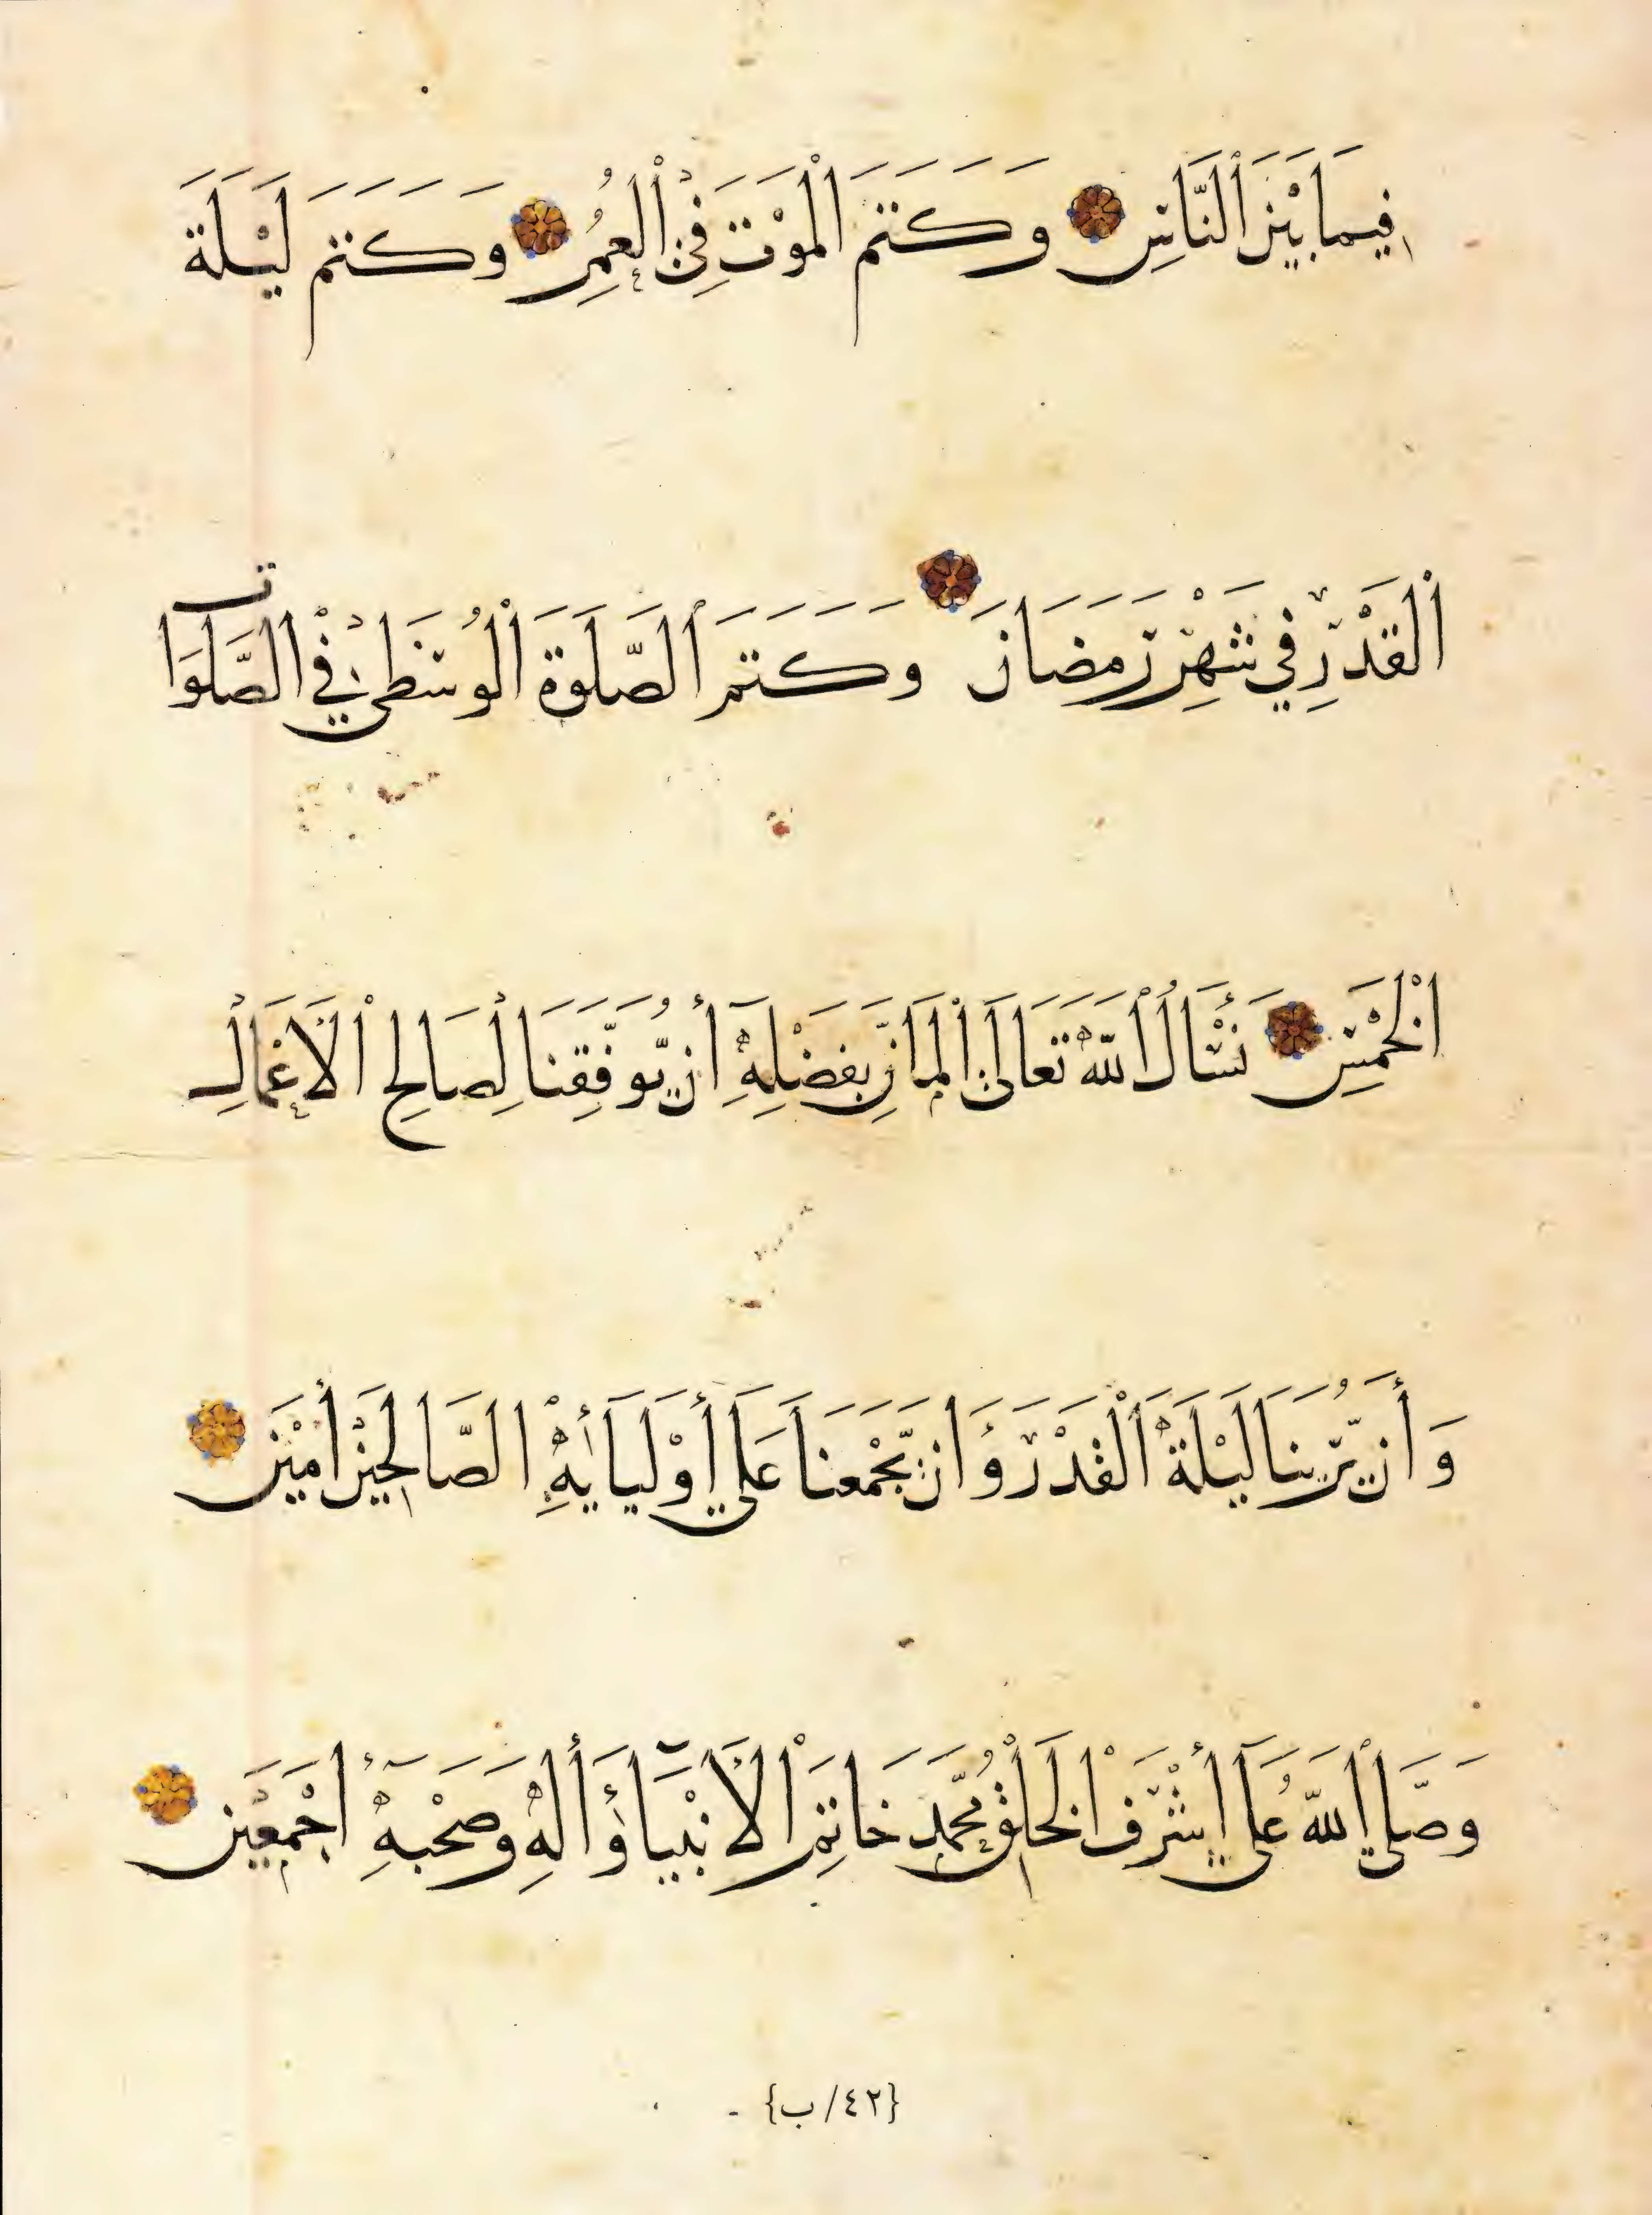 فِيمَا بَيْنَ ٱلنَّاسِ وَكَتَمَ ٱلْمَوْتَ فِي ٱلْعُمُرِ وَكَتَمَ لَيْلَةَ
ٱلْقَدْرِ فِي شَهْرِ رَمَضَانَ وَكَتَمَ ٱلصَّلَوٰةَ ٱلْوُسْطَىٰ فِي ٱلصَّلَوَاتِ
ٱلْخَمْسِ نَسْأَلُ ٱللَّهَ تَعَالَىٰ ٱلْمَانَّ بِفَضْلِهِ أَن يُوَفِّقَنَا لِصَالِحِ ٱلْأَعْمَالِ
وَأَن يُرِيَنَا لَيْلَةَ ٱلْقَدْرِ وَأَن يَجْمَعَنَا عَلَىٰ أَوْلِيَائِهِ ٱلصَّالِحِينَ أٰمِيْنَ
وَصَلَّى ٱللَّهُ عَلَىٰ أَشْرَفِ ٱلْخَلْقِ مُحَمَّدٍ خَاتِمِ ٱلْأَنْبِيَاءِ وَأٰلِهِ وَصَحْبِهِ أَجْمَعِيْنَ
{٤٢/ب}